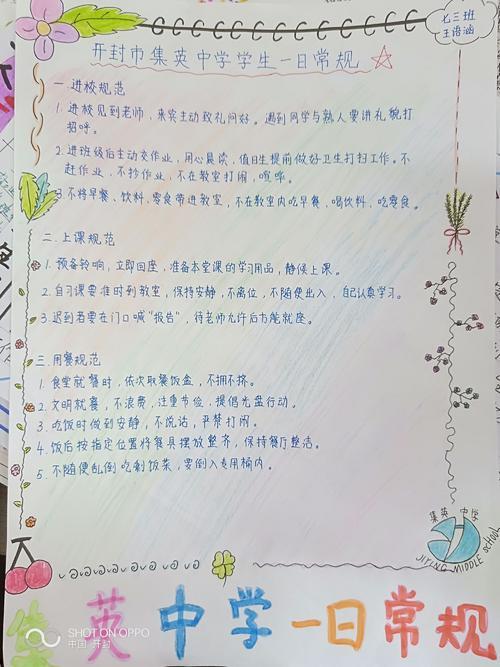 七三班
王语涵
开封市集英中学学生一日常规
一.进校规范
1.进校见到老师,来宾主动致礼问好。遇到同学与熟人要讲礼貌打
招呼。
2.进班级后主动交作业,用心晨读,值日生提前做好卫生打扫工作。不
赶作业,不抄作业,不在教室打闹,喧哗。
3.不将早餐、饮料,零食带进教室,不在教室内吃早餐,喝饮料,吃零食。
二.上课规范
1.预备铃响,立即回座,准备本堂课的学习用品,静候上课。
2.自习课要准时到教室,保持安静,不离位,不随便出入,自己认真学习。
3.迟到者要在门口喊“报告”,待老师允许后方能就座。
三.用餐规范
1.食堂就餐时,依次取餐饭盒,不拥不挤。
2.文明就餐,不浪费,注重节俭,提倡光盘行动。
3.吃饭时做到安静,不说话,严禁打闹。
4.饭后按指定位置将餐具摆放整齐,保持餐厅整洁。
5.不随便乱倒吃剩饭菜,要倒入专用桶内。
集英中学
JIYING MIDDLE SCHOOL
集英中学一日常规
SHOT ON OPPO
中国·开封